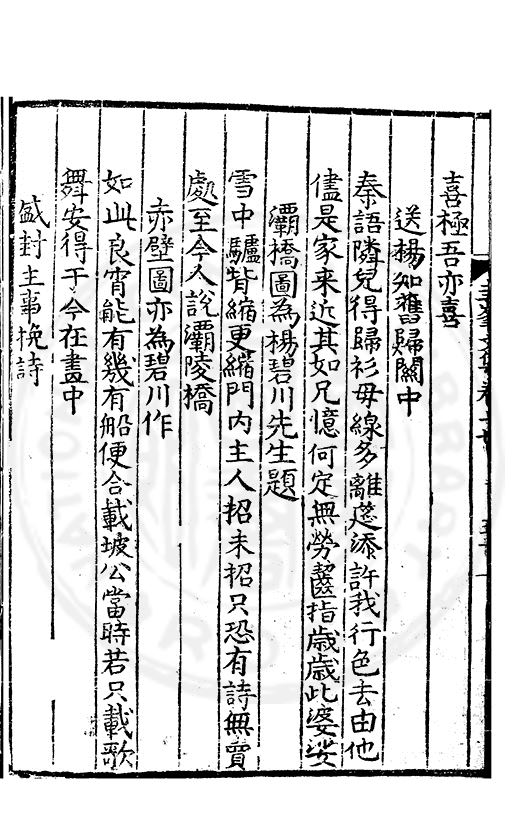 喜極吾亦喜
送楊知舊歸關中
秦語隣兒得歸衫母線多離筵添許我行色去由他
儘是家来近其如兄憶何定無勞齧指歲歲此婆娑
灞橋圖為楊碧川先生題
雪中驢背縮更縮門内主人招未招只恐有詩無賈
處至今人說灞陵橋
赤壁圖亦為碧川作
如此良宵能有幾有船便合載坡公當時若只載歌
舞安得于今在畫中
盛封主事挽詩